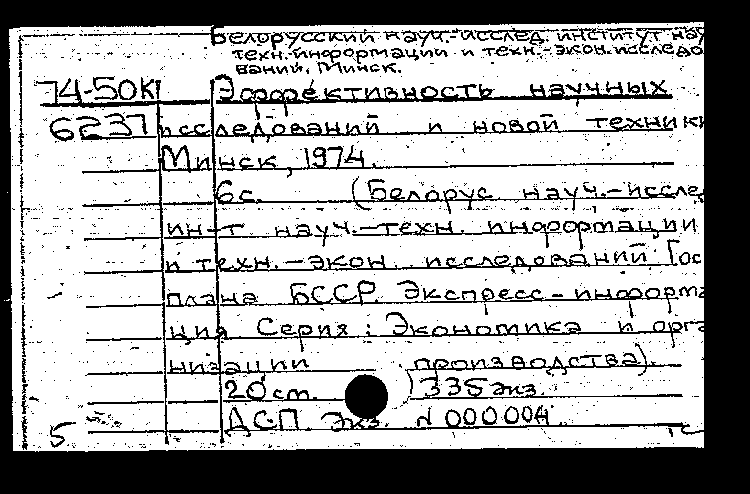 Белорусский науч.-исслед. институт нау
техн.информации и техн.-экон.исследо
ваний. Минск.
74-50к Эффективность научных
6237 исследований и новой техники
Минск, 1974.
6с. (Белорус науч.-исслед
ин-т науч.-техн. информации
и техн.-экон. исследований Гос
плана БССР. Экспресс-информа
ция Серия: Экономика и орга
низации производства).
20см. 335 экз.
ДСП. Экз. № 000004.
5